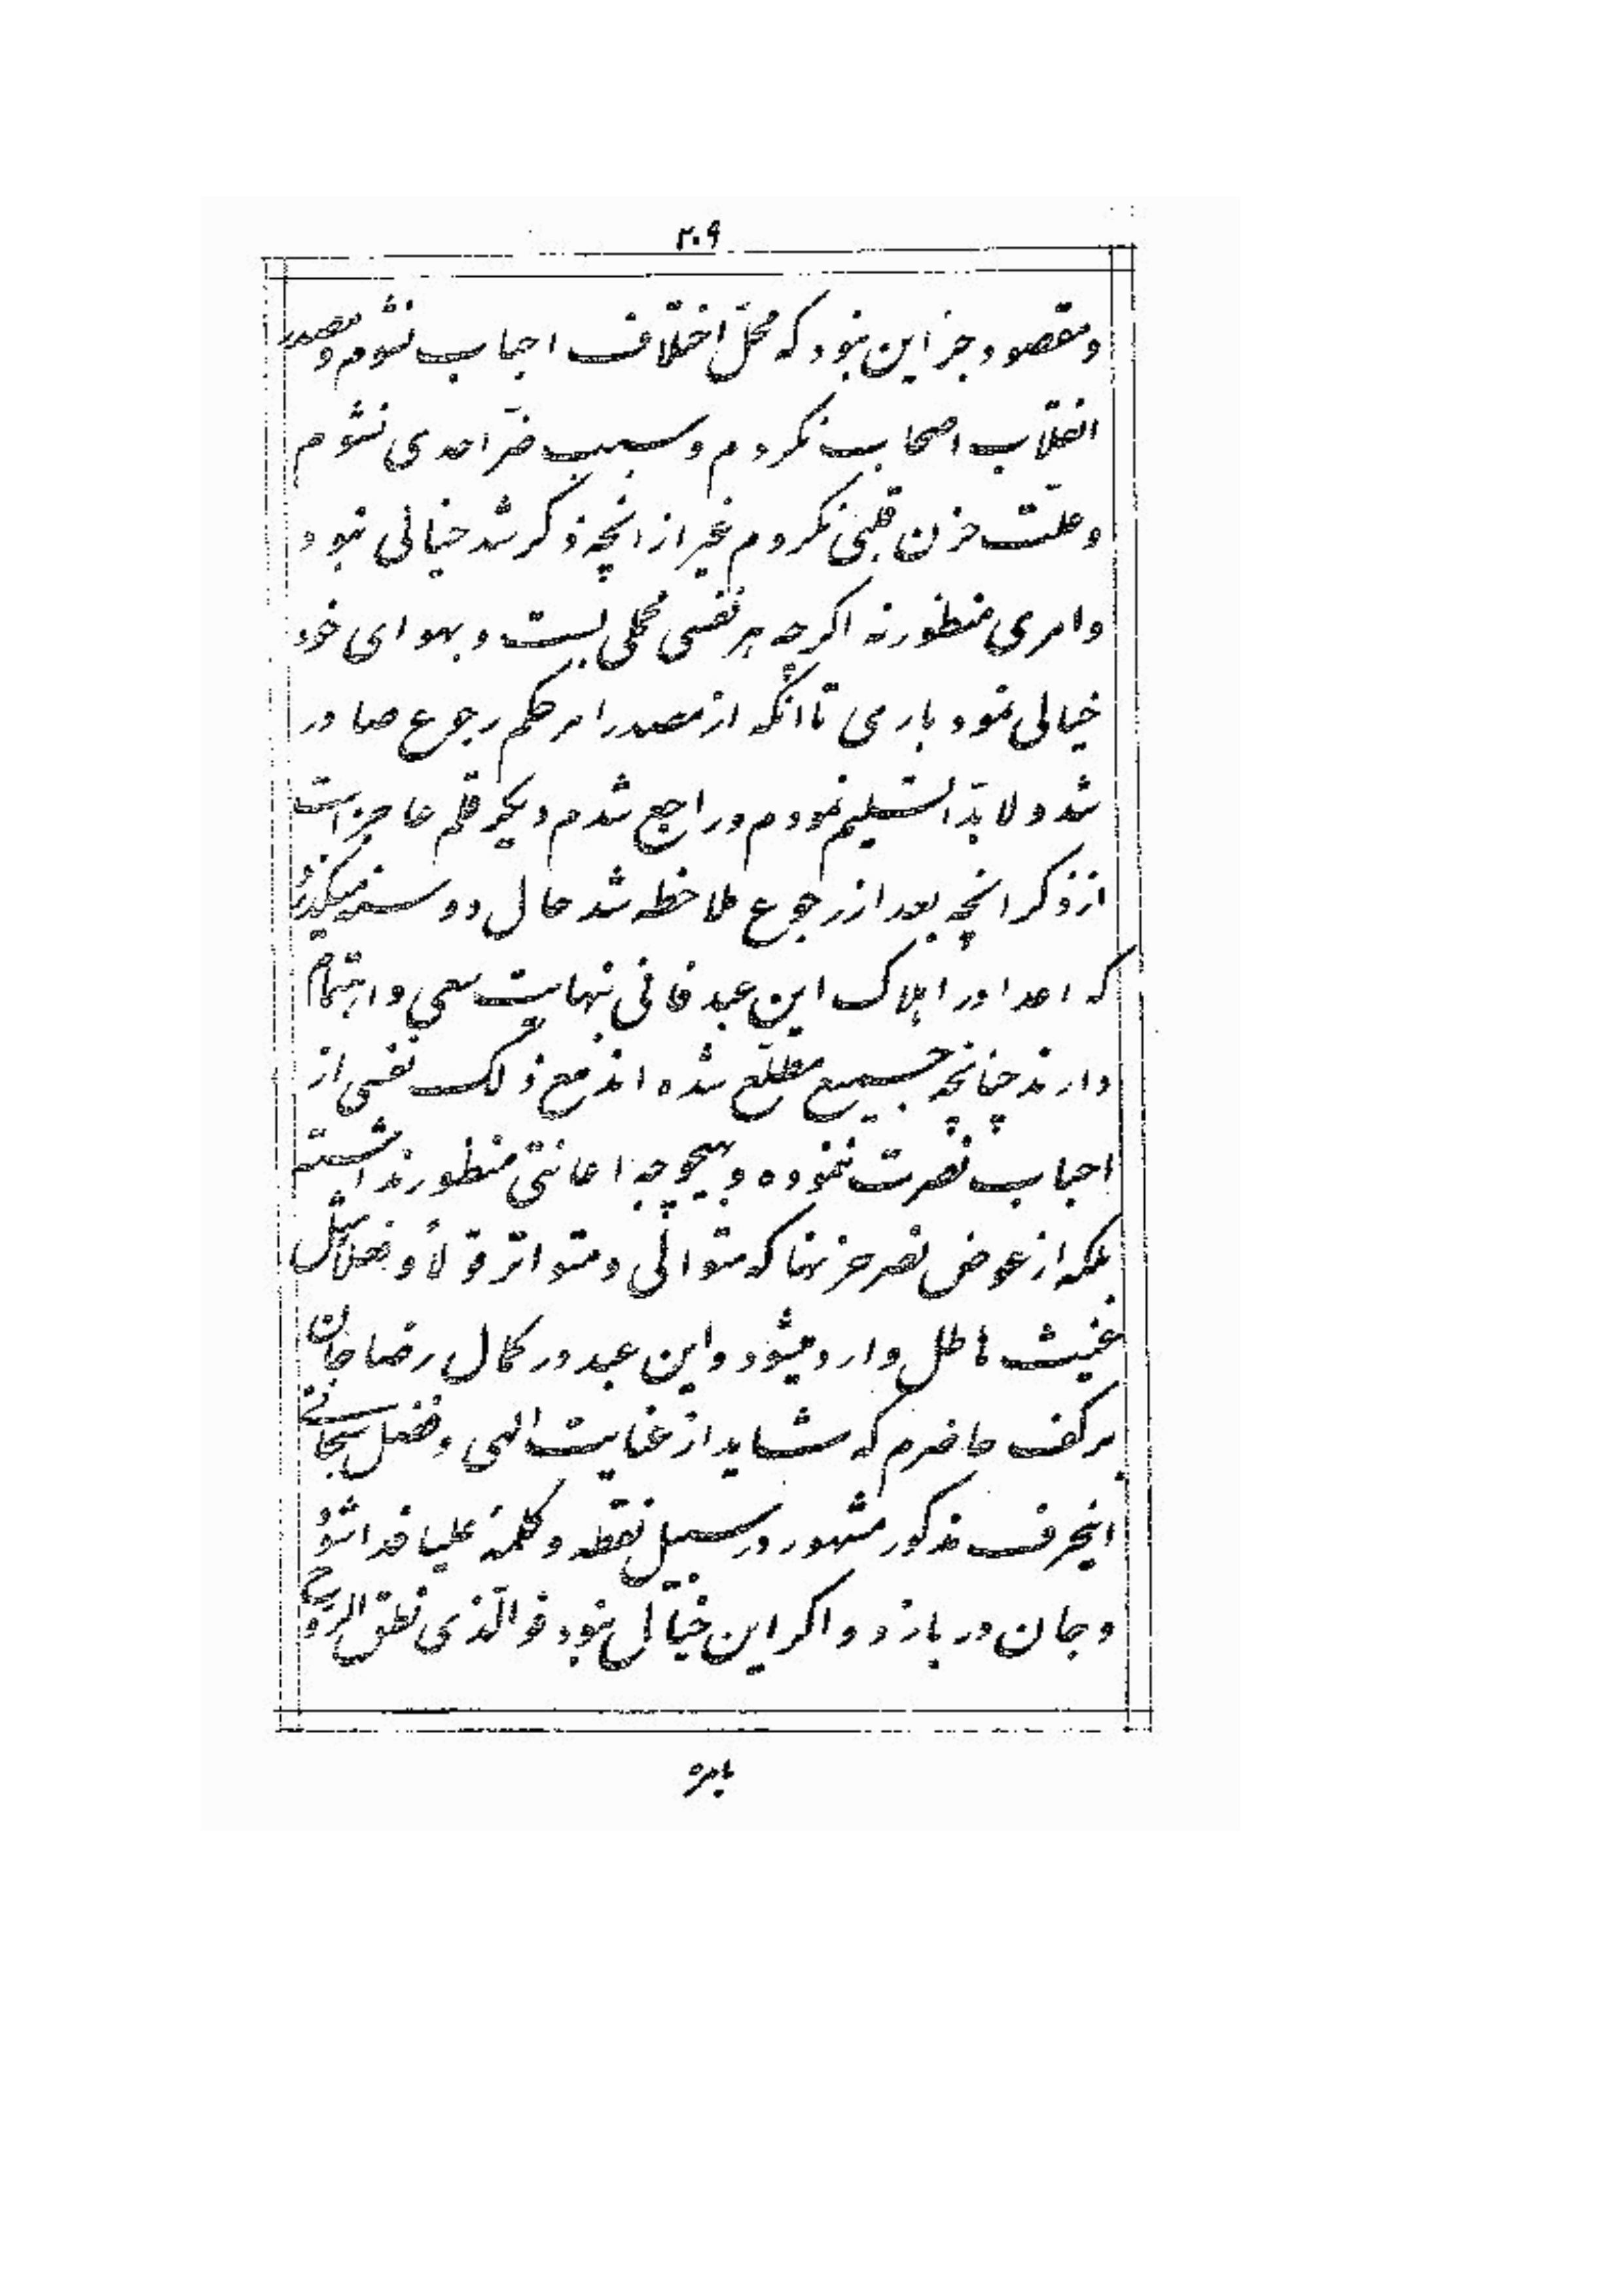 ۲۰۹
و مقصود جز این نبود که محلّ اختلاف احباب نشوم و مصدر
انقلاب اصحاب نکردم و سبب ضرّ احدی نشوم
و علّت حزن قلبی نکردم غیر از انچه ذکر شد خیالی نبود
و امری منظور نه اکرچه هر نفسی محملی بست و بهوای خود
خیالی نمود باری تا انکه از مصدر امر حکم رجوع صادر
شد و لابدّاً تسلیم نمودم و راجع شدم دیکر قلم عاجز است
از ذکر انچه بعد از رجوع ملاحظه شد حال دو سنه میکذرد
که اعدا در اهلاک این عبد فانی بنهایت سعی و اهتمام
دارند چنانچه جمیع مطّلع شده اند مع ذلک نفسی از
احباب نصرت ننموده و بهیچوجه اعانتی منظور نداشته
بلکه از عوض نصر حزنها که متوالی و متواتر قولاً و فعلاً مثل
غیث هاطل وارد میشود و این عبد در کمال رضا جان
بر کف حاضرم که شاید از عنایت الهی و فضل سبحانی
اینحرف مذکور مشهور در سبیل نقطه و کلمهٔ علیا فدا شود
و جان در بازد و اکر این خیال نبود فو الّذی نطق الروح
بامره